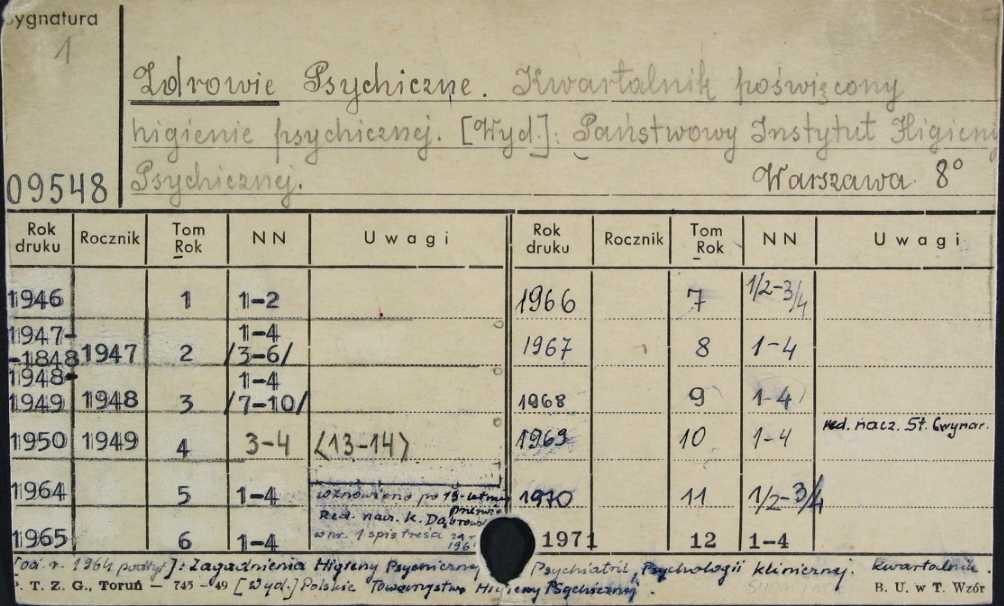 Sygnatura
1
Zdrowie Psychiczne. Kwartalnik poświęcony
higienie psychicznej. [Wyd.]: Państwowy Instytut Higieny
09548 Psychicznej. Warszawa 8°
Rok druku Rocznik Tom Rok NN Uwagi Rok druku Rocznik Tom Rok NN Uwagi
1946 1 1-2 1966 7 1/2-3/4
1947-
-1848 1947 2 1-4 /3-6/ 1967 8 1-4
1948-
1949 1948 3 1-4 /7-10/ 1968 9 1-4
1950 1949 4 3-4 <13-14> 1969 10 1-4 red. nacz. St. Cwynar.
1964 5 1-4 wznowiono po 13-letniej 1970 11 1/2-3/4
Red. nacz. K. Dąbrow
1965 6 1-4 w nr. 1 spis treści 1971 12 1-4
[od r. 1964 podtyt]: Zagadnienia Higieny Psychicznej Psychiatrii, Psychologii klinicznej. Kwartalnik.
P. T. Z. G., Toruń — 745 -49 [Wyd.] Polskie Towarzystwo Higieny Psychicznej. B. U. w T. Wzór